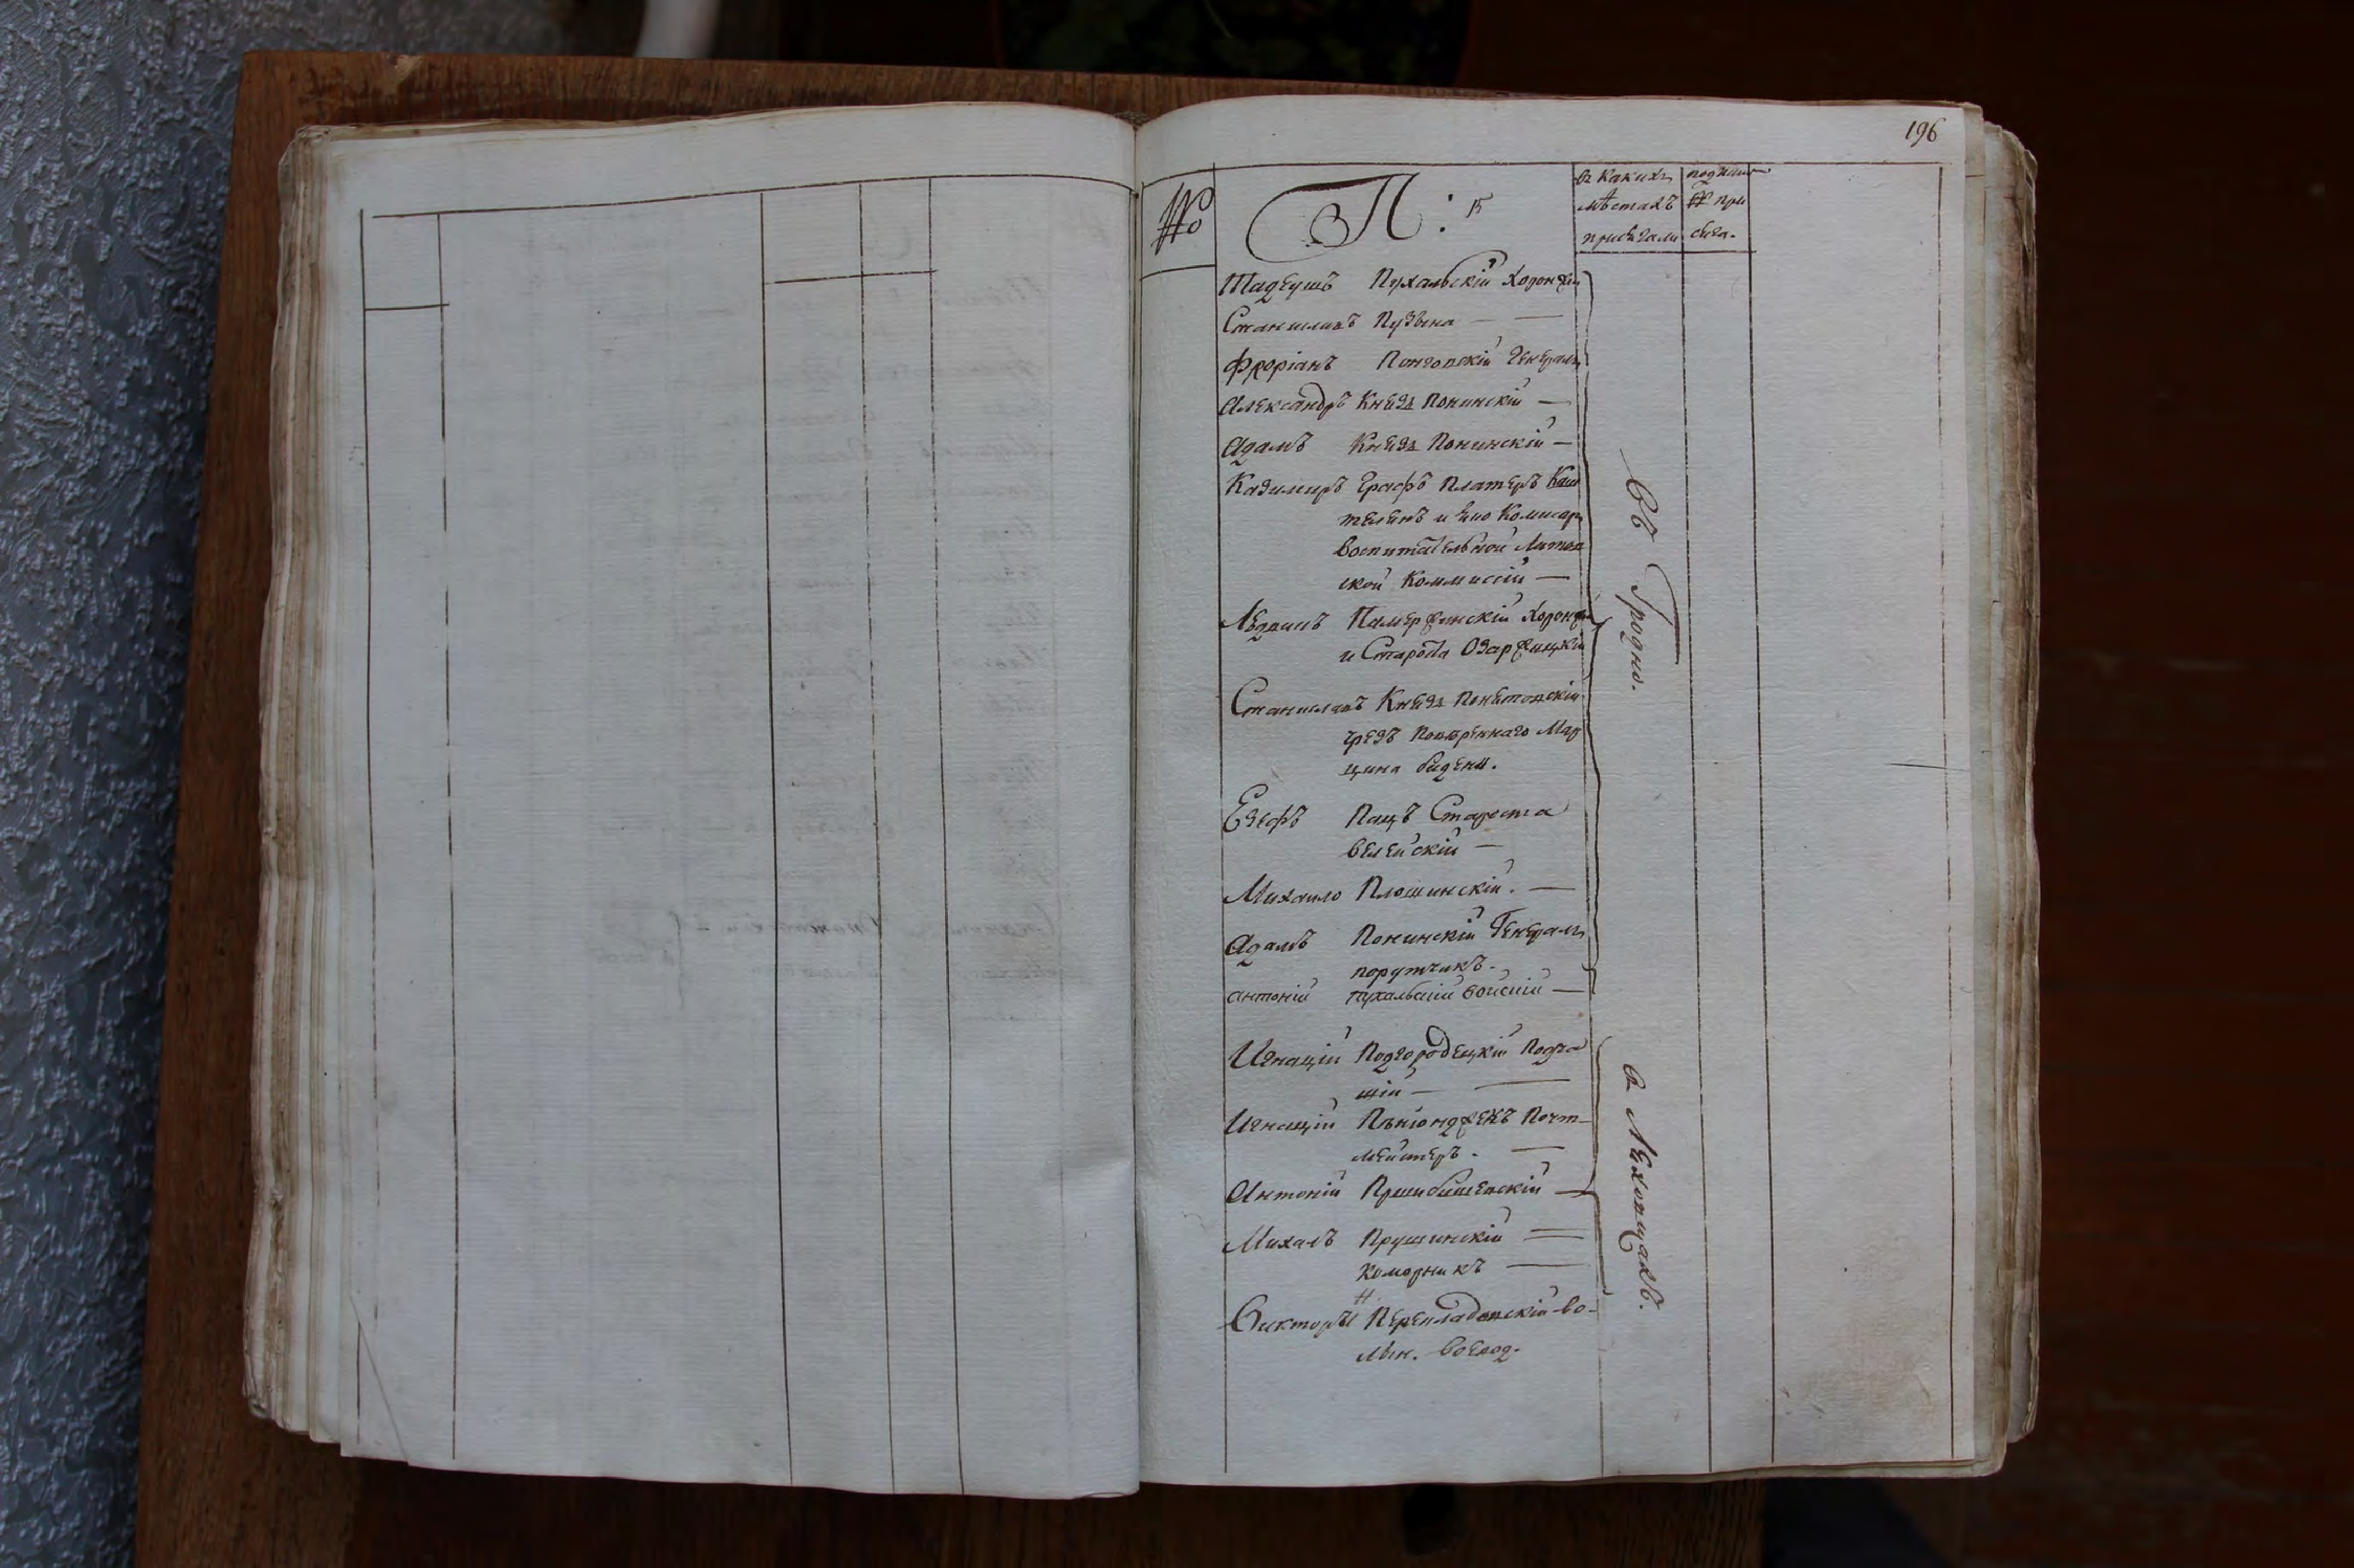 196
№
П:
въ какихъ
мѣстахъ
присягали
под каки
№ при
сяга.
Тадеушъ Пухальскій Хоронжій
Станиславъ Пузына
Флоріанъ Понговскій Генералъ
Александръ Князь Понинскій
Адамъ Князь Понинскій
Казимиръ Графъ Платеръ Каш
телянъ и
Воспитательной Литов
ской Коммиссіи
Пан Хоронжій
и Староста
Станиславъ Князь Понятовскій
чрезъ Повѣреннаго Мар
цина Бадени.
Езефъ Пацъ Староста
Велейскій
Михайло Плошинскій.
Адамъ Понинскій Генералъ
порутчикъ.
Антоній Пухальскій Войскій
Въ Гродно.
Игнацій Подгородецкій Подча
шій
Игнацій Пѣніонджекъ Почт
мейстеръ.
Антоній Пршибышевскій
Михалъ Прушинскій
Коморникъ
Викторъ Перекладовскій во-
лын. воевод.
въ Лѣховцахъ.